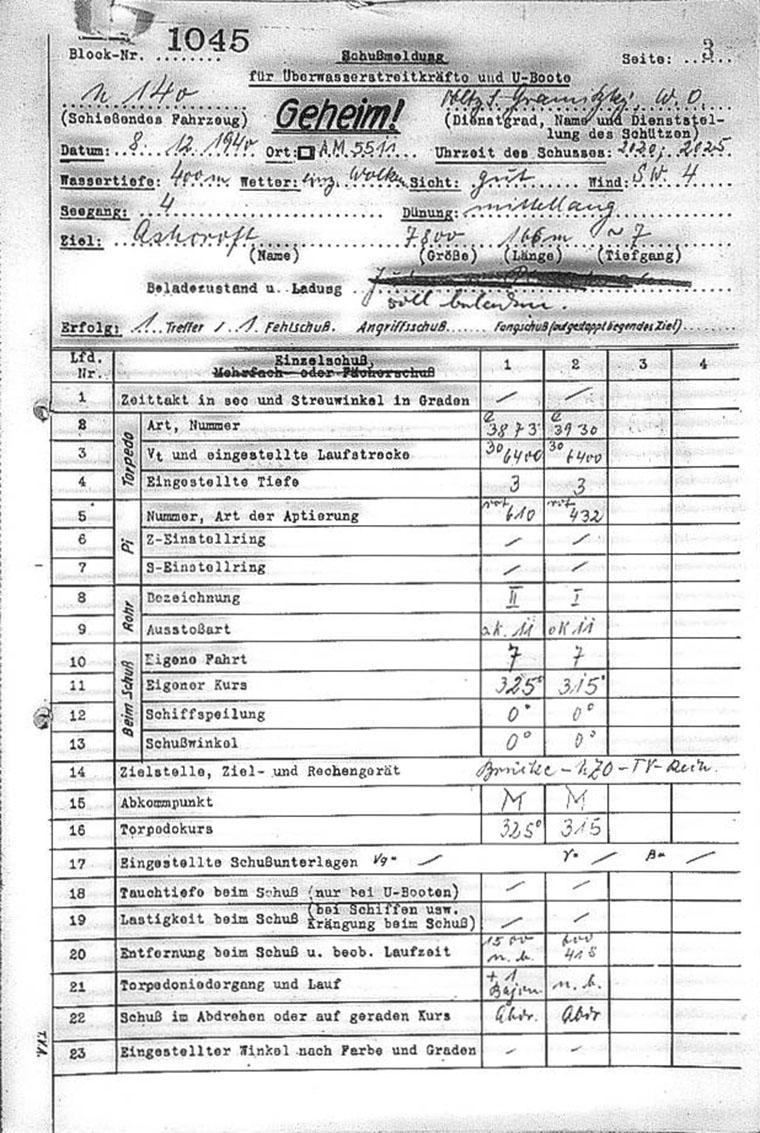 1045
Block-Nr. ........ Schußmeldung Seite: 3
für Überwasserstreitkräfte und U-Boote
U 140
(Schießendes Fahrzeug) Geheim! W.O.
(Dienstgrad, Name und Dienststel-
lung des Schützen)
Datum: 8. 12. 1940 Ort: AM 5511 Uhrzeit des Schusses: 2120, 2025
Wassertiefe: 400m Wetter: einz. Wolken Sicht: gut Wind: SW. 4
Seegang: 4 Dünung: mittellang
Ziel: Ashcroft 7800 166m ~7
(Name) (Größe) (Länge) (Tiefgang)
Beladezustand u. Ladung
voll beladen.
Erfolg: 1 Treffer / 1 Fehlschuß. Angriffsschuß...... Fangschuß (auf gestoppt liegendes Ziel)
Lfd. Nr. Einzelschuß, 1 2 3 4
Mehrfach- oder Fächerschuß
1 Zeittakt in sec und Streuwinkel in Graden – –
Torpedo
2 Art, Nummer e 3873 e 3930
3 Vt und eingestellte Laufstrecke 30 6400 30 6400
4 Eingestellte Tiefe 3 3
Pi
5 Nummer, Art der Aptierung rot 610 rot 432
6 Z-Einstellring – –
7 S-Einstellring – –
Rohr
8 Bezeichnung II I
9 Ausstoßart ak. 11 ak 11
Beim Schuß
10 Eigene Fahrt 7 7
11 Eigener Kurs 325° 315°
12 Schiffspeilung 0° 0°
13 Schußwinkel 0° 0°
14 Zielstelle, Ziel- und Rechengerät Brücke - UZO - TV-Rech.
15 Abkommpunkt M M
16 Torpedokurs 325° 315
17 Eingestellte Schußunterlagen Vg= – γ= – B= –
18 Tauchtiefe beim Schuß (nur bei U-Booten) – –
19 Lastigkeit beim Schuß (bei Schiffen usw. Krängung beim Schuß) – –
20 Entfernung beim Schuß u. beob. Laufzeit 1500 n.b. 600 41s
21 Torpedoniedergang und Lauf n.b.
22 Schuß im Abdrehen oder auf geraden Kurs Abdr. Abdr
23 Eingestellter Winkel nach Farbe und Graden – –